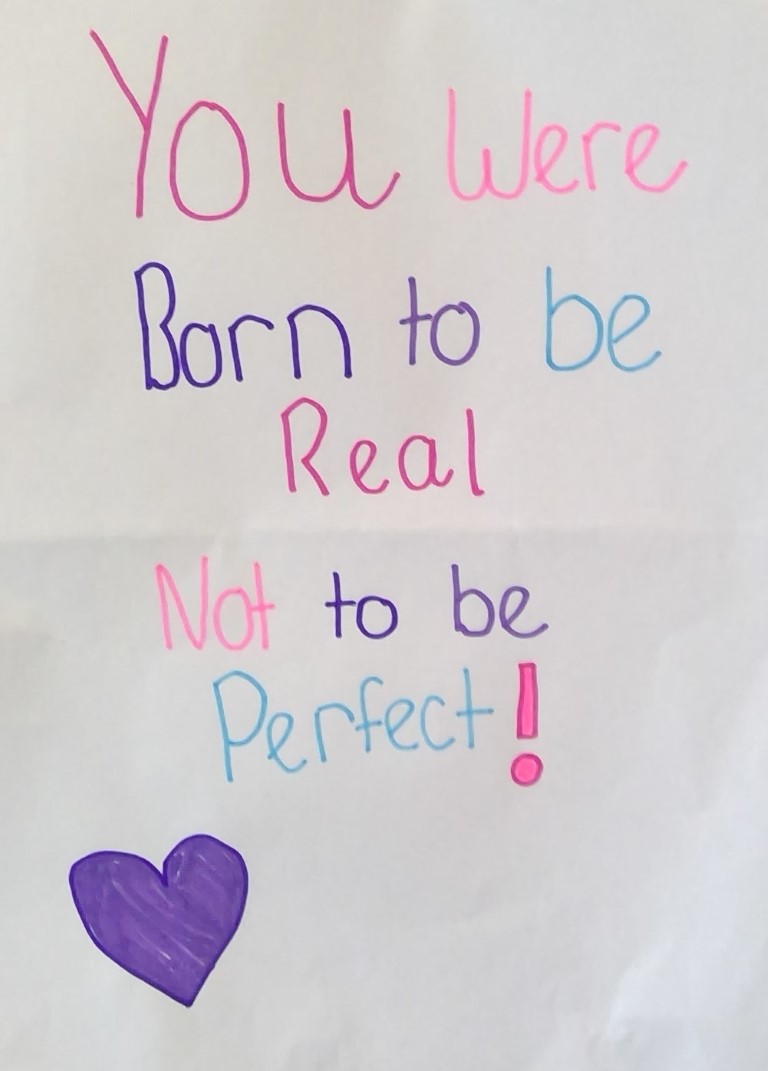 You Were
Born to be
Real
Not to be
Perfect!